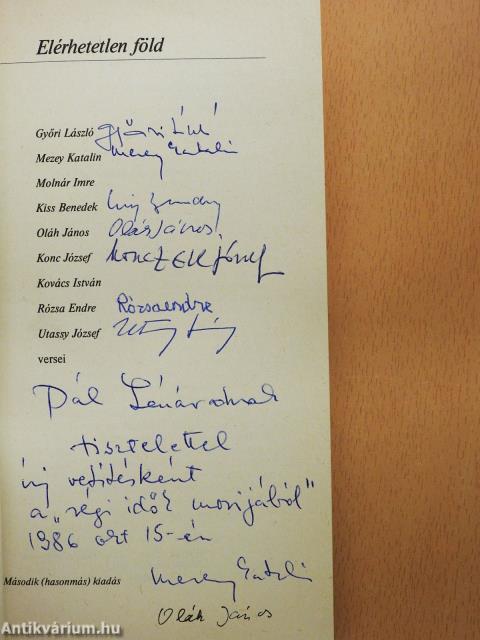 Elérhetetlen föld
Győri László Győri László
Mezey Katalin Mezey Katalin
Molnár Imre
Kiss Benedek Kiss Benedek
Oláh János Oláh János
Konc József KONCZEK József
Kovács István
Rózsa Endre Rózsaendre
Utassy József
versei
Pál Lénárdnak
tisztelettel
új vetítésként
a „régi idők mozijából"
1986 okt 15-én
Második (hasonmás) kiadás Mezey Katalin
Oláh János
Antikvárium.hu